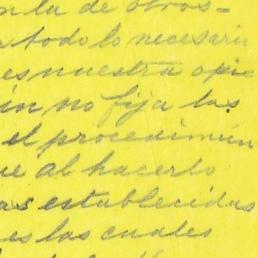 la de otros=
todo lo necesario
es nuestra opi
ón no fija las
el procedimun
ue al hacerlo
as establecidas
es las cuales